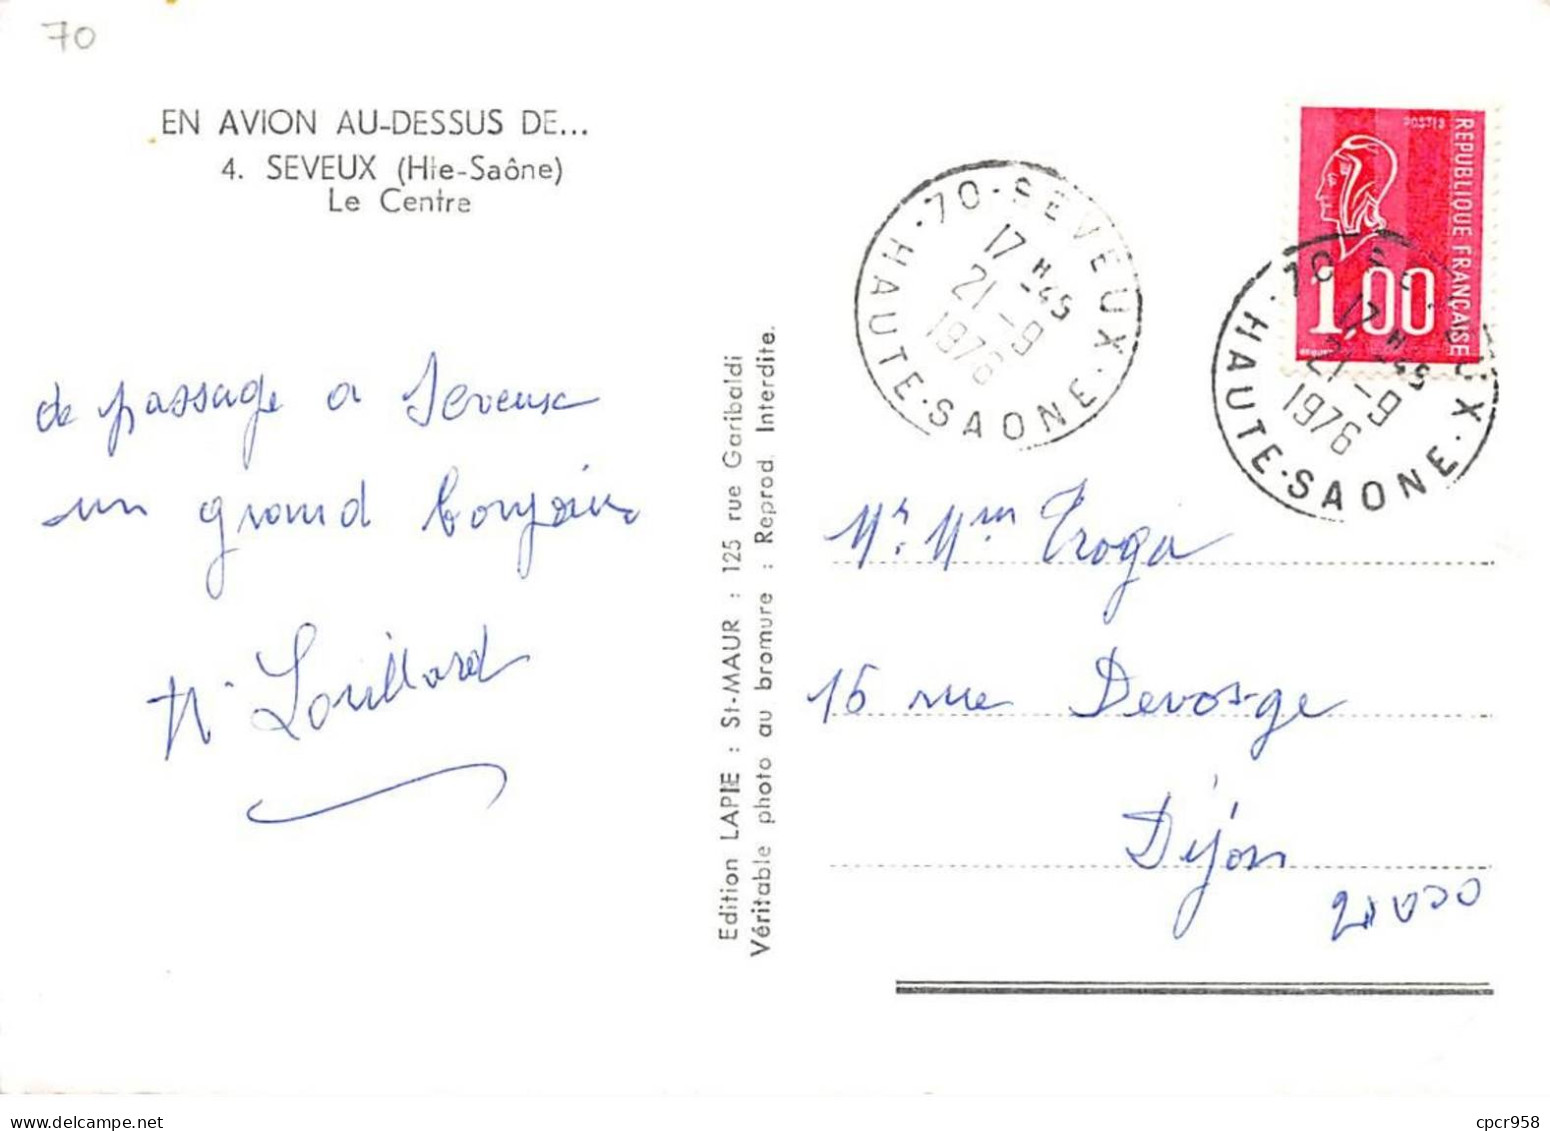 70
EN AVION AU-DESSUS DE...
4. SEVEUX (Hte-Saône)
Le Centre
de passage a Seveux
un grand bonjour
Edition LAPIE : St-MAUR : 125 rue Garibaldi
Véritable photo au bromure : Reprod. Interdite.
70-SEVEUX
HAUTE-SAONE
17 H 45
21-9
1976
POSTES
REPUBLIQUE FRANÇAISE
1,00
70-SEVEUX
HAUTE-SAONE
17 H 45
21-9
1976
Mr. Mm Troga
16 rue Devosge
Dijon
21000
cpcr958